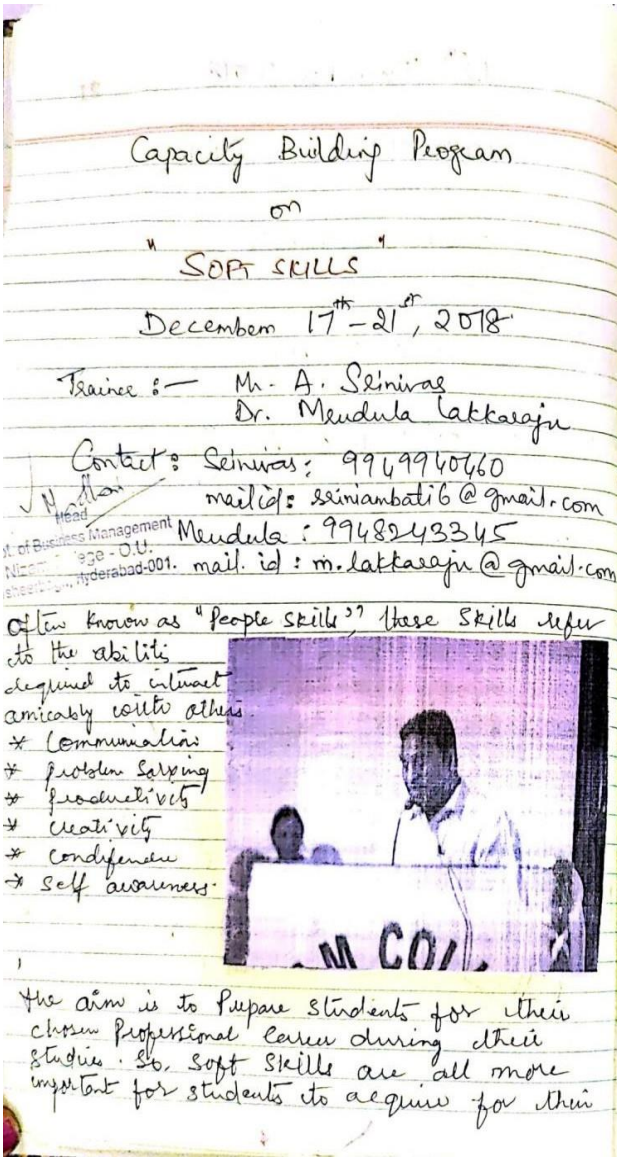 Capacity Building Program
on
"SOFT SKILLS"
December 17th - 21st, 2018.
Trainer :— Mr. A. Srinivas
Dr. Mrudula Lakkaraju
Contact : Srinivas : 9949940460
mail id : sriniambati6@gmail.com
Head
Business Management Mrudula : 9948243345
ege - O.U.
yderabad-001. mail. id : m.lakkaraju@gmail.com
often known as "People skills", these skills refer
to the abilitis
dequired to interact
amicably with others.
* Communication
* problem Solving
* productivity
* creativity
* condifendence
* self awareness.
M COL
the aim is to Prepare students for their
chosen Professional career during their
studies. So, soft skills are all more
important for students to acquire for their